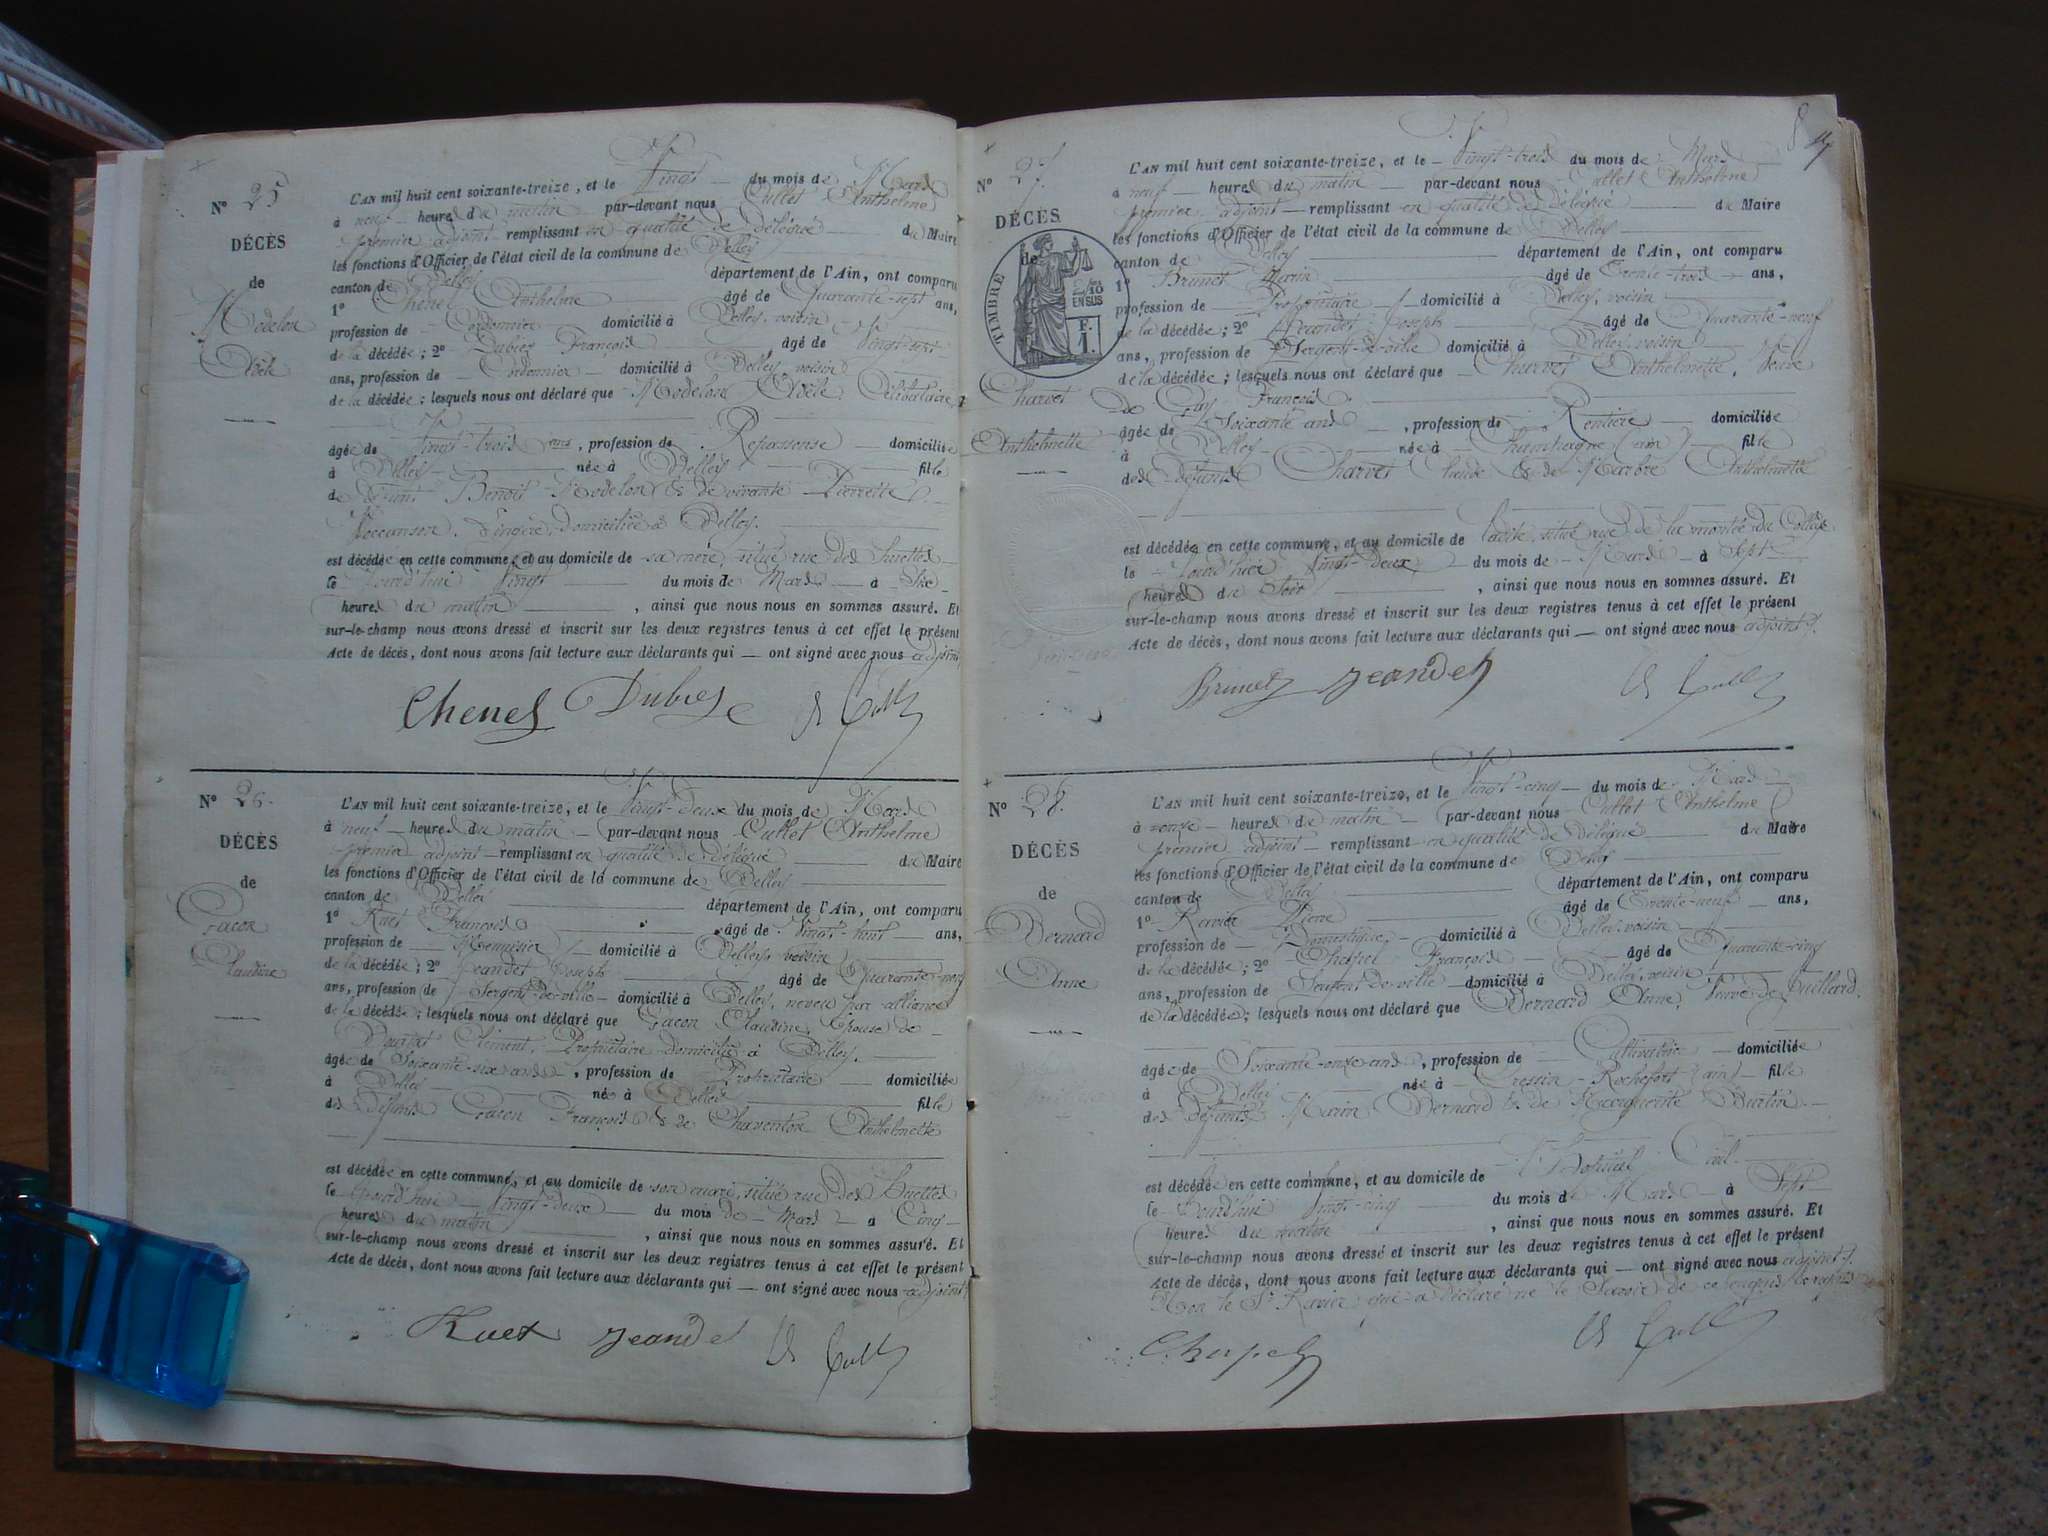 N° 25
DÉCÈS
de
Modelon
Adèle
L'AN mil huit cent soixante-treize, et le Vingt du mois de Mars
à neuf heures du matin par-devant nous Cullet Anthelme
premier adjoint remplissant en qualité de délégué du Maire
les fonctions d'Officier de l'état civil de la commune de Belley
canton de Belley département de l'Ain, ont comparu
1° Chenel Anthelme âgé de Quarante-sept ans,
profession de Cordonnier domicilié à Belley, voisin
de la décédée; 2° François âgé de Vingt-six
ans, profession de Cordonnier domicilié à Belley, voisin
de la décédée; lesquels nous ont déclaré que Modelon Adèle, Célibataire,
âgée de Vingt-trois ans, profession de Repasseuse domiciliée
à Belley née à Belley fille
de défunt Benoît Modelon & de vivante Pierrette
Vaccanson, Lingère, domiciliée à Belley.
est décédée en cette commune, et au domicile de sa mère, situé rue des
le Jourd'hui Vingt du mois de Mars à Six
heures du matin, ainsi que nous nous en sommes assuré. Et
sur-le-champ nous avons dressé et inscrit sur les deux registres tenus à cet effet le présent
Acte de décès, dont nous avons fait lecture aux déclarants qui — ont signé avec nous adjoint
Chenel
N° 26.
DÉCÈS
de
Gacon
Claudine
L'AN mil huit cent soixante-treize, et le Vingt-deux du mois de Mars
à neuf heures du matin par-devant nous Cullet Anthelme
premier adjoint remplissant en qualité de délégué du Maire
les fonctions d'Officier de l'état civil de la commune de Belley
canton de Belley département de l'Ain, ont comparu
1° Ruet François âgé de Vingt-huit ans,
profession de Menuisier domicilié à Belley, voisin
de la décédée; 2° Jeandet Joseph âgé de Quarante-neuf
ans, profession de Sergent-de-ville domicilié à Belley, neveu par alliance
de la décédée; lesquels nous ont déclaré que Gacon Claudine, Epouse de
Clément, Propriétaire domicilié à Belley.
âgée de Soixante-six ans, profession de Propriétaire domiciliée
à Belley née à Belley fille
des défunts Gacon François & de Charenton Anthelmette
est décédée en cette commune, et au domicile de son mari, situé rue des
le Jourd'hui Vingt-deux du mois de Mars à Cinq
heures du matin, ainsi que nous nous en sommes assuré. Et
sur-le-champ nous avons dressé et inscrit sur les deux registres tenus à cet effet le présent
Acte de décès, dont nous avons fait lecture aux déclarants qui — ont signé avec nous adjoint
Ruet Jeandet
N° 27.
DÉCÈS
de
TIMBRE
2/10
EN SUS
F.
1.
Charvet
Anthelmette
L'AN mil huit cent soixante-treize, et le Vingt-trois du mois de Mars
à neuf heures du matin par-devant nous Cullet Anthelme
premier adjoint remplissant en qualité de délégué du Maire
les fonctions d'Officier de l'état civil de la commune de Belley
canton de Belley département de l'Ain, ont comparu
1° Brunet Marin âgé de Trente-trois ans,
profession de Propriétaire domicilié à Belley, voisin
de la décédée; 2° Jeandet Joseph âgé de Quarante-neuf
ans, profession de Sergent-de-ville domicilié à Belley, voisin
de la décédée; lesquels nous ont déclaré que Charvet Anthelmette, Veuve
de François.
âgée de Soixante ans, profession de Rentière domiciliée
à Belley née à Champagne (ain) fille
des défunts Charvet Claude & de Marbre Anthelmette
est décédée en cette commune, et au domicile de ladite, situé rue de la montée du Collège
le Jourd'hier Vingt-deux du mois de Mars à Sept
heures du Soir, ainsi que nous nous en sommes assuré. Et
sur-le-champ nous avons dressé et inscrit sur les deux registres tenus à cet effet le présent
Acte de décès, dont nous avons fait lecture aux déclarants qui — ont signé avec nous adjoint
Brunet Jeandet
N° 28.
DÉCÈS
de
Bernard
Anne
L'AN mil huit cent soixante-treize, et le Vingt-cinq du mois de Mars
à onze heures du matin par-devant nous Cullet Anthelme
premier adjoint remplissant en qualité de délégué du Maire
les fonctions d'Officier de l'état civil de la commune de Belley
canton de Belley département de l'Ain, ont comparu
1° Ravier Pierre âgé de Trente-neuf ans,
profession de Domestique domicilié à Belley, voisin
de la décédée; 2° Chapel François âgé de Quarante-cinq
ans, profession de Sergent-de-ville domicilié à Belley, voisin
de la décédée; lesquels nous ont déclaré que Bernard Anne, Veuve de
âgée de Soixante-onze ans, profession de Cultivatrice domiciliée
à Belley née à Cressin-Rochefort (ain) fille
des défunts Marin Bernard & de Marguerite Burtin
est décédée en cette commune, et au domicile de
le Jourd'hui Vingt-cinq du mois de Mars à Sept
heures du matin, ainsi que nous nous en sommes assuré. Et
sur-le-champ nous avons dressé et inscrit sur les deux registres tenus à cet effet le présent
Acte de décès, dont nous avons fait lecture aux déclarants qui — ont signé avec nous adjoint
Non le Sr Ravier qui a déclaré ne le Savoir de ce